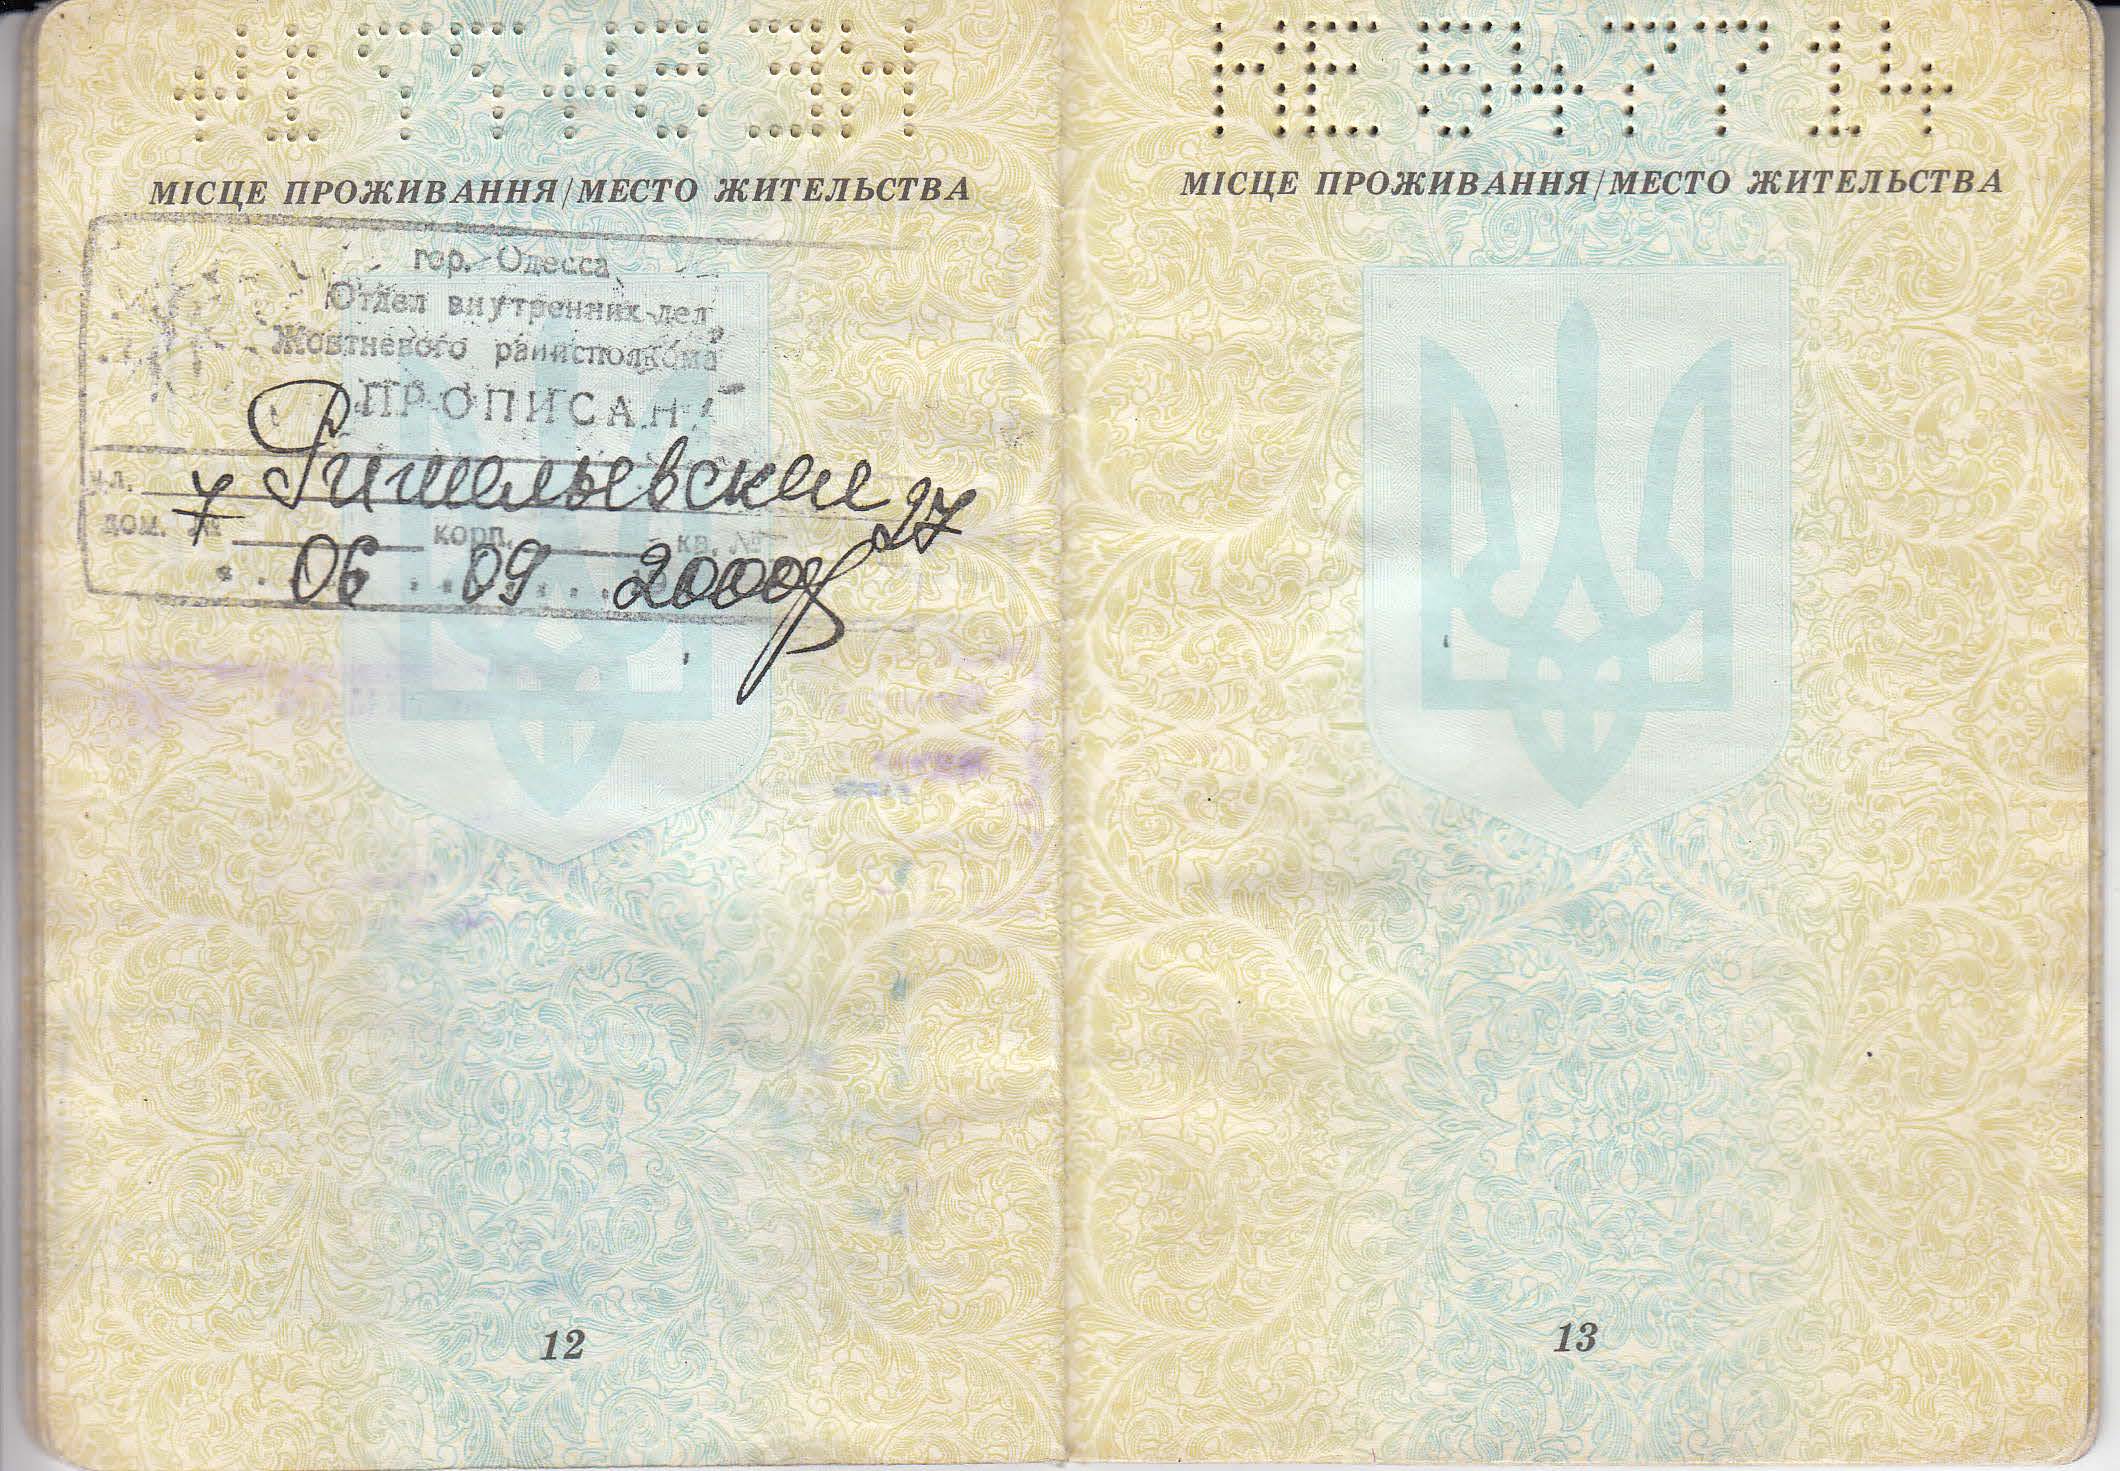 МІСЦЕ ПРОЖИВАННЯ/МЕСТО ЖИТЕЛЬСТВА
гор. Одесса
Отдел внутренних дел
Жовтневого райисполкома
ПРОПИСАН
ул. Ришельевская
дом. № 7 корп. кв. № 27
06 09 2000
12
НЕ547714
МІСЦЕ ПРОЖИВАННЯ/МЕСТО ЖИТЕЛЬСТВА
13